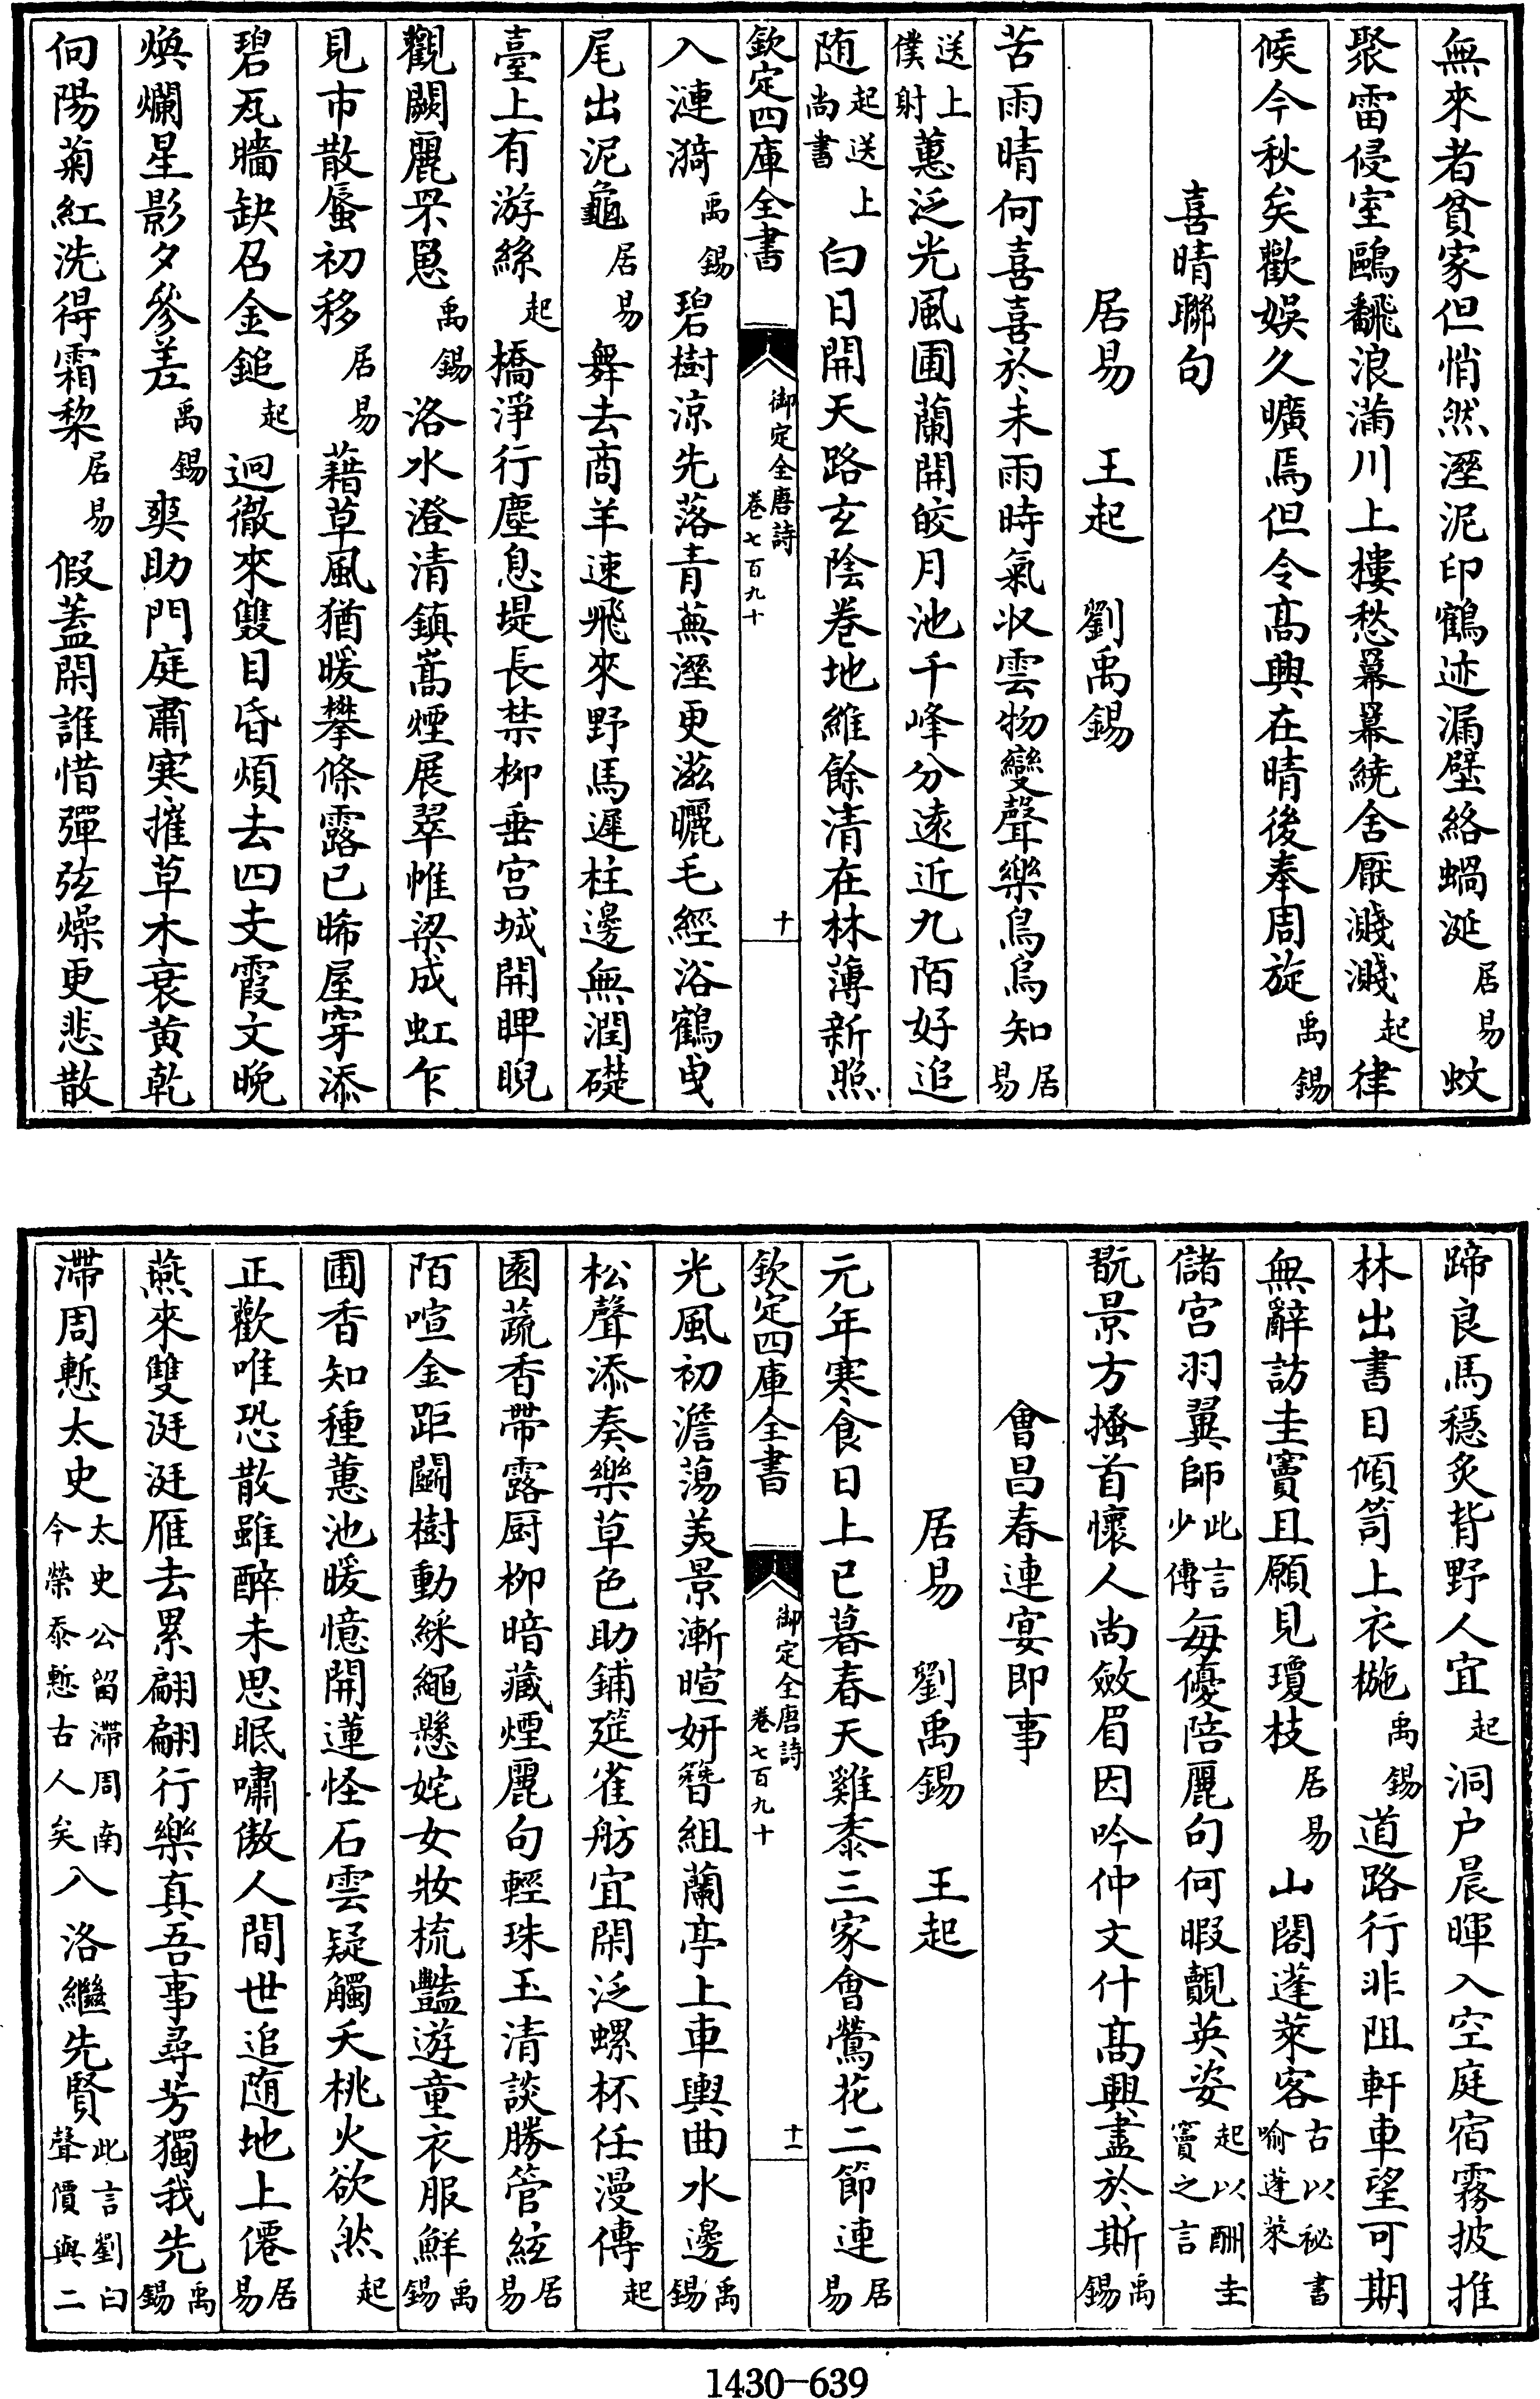 無來者貧家但悄然溼泥印鶴迹漏壁絡蝸涎居易蚊
聚雷侵室鷗飜浪滿川上樓愁冪冪繞舍厭濺濺起律
候今秋矣歡娛久曠焉但令高興在晴後奉周旋禹錫
喜晴聯句
居易　王起　劉禹錫
苦雨晴何喜喜於未雨時氣收雲物變聲樂鳥烏知居易
送上僕射蕙泛光風圃蘭開皎月池千峰分遠近九陌好追
隨起送上尚書白日開天路玄陰卷地維餘清在林薄新照
欽定四庫全書　御定全唐詩卷七百九十　十
入漣漪禹錫碧樹涼先落青蕪溼更滋曬毛經浴鶴曳
尾出泥龜居易舞去商羊速飛來野馬遲柱邊無潤礎
臺上有游絲起橋淨行塵息堤長禁柳垂宮城開睥睨
觀闕麗罘罳禹錫洛水澄清鎮嵩煙展翠帷梁成虹乍
見市散蜃初移居易藉草風猶暖攀條露已晞屋穿添
碧瓦牆缺召金鎚起迥徹來雙目昏煩去四支霞文晚
煥爛星影夕參差禹錫爽助門庭肅寒摧草木衰黃乾
向陽菊紅洗得霜棃居易假蓋閑誰惜彈弦燥更悲散
蹄良馬穩炙背野人宜起洞戶晨暉入空庭宿霧披推
林出書目傾笥上衣椸禹錫道路行非阻軒車望可期
無辭訪圭竇且願見瓊枝居易山閣蓬萊客古以秘書喻蓬萊
儲宮羽翼師此言少傅每優陪麗句何暇覿英姿起以酬圭竇之言
翫景方搔首懷人尚斂眉因吟仲文什高興盡於斯禹錫
會昌春連宴即事
居易　劉禹錫　王起
元年寒食日上巳暮春天雞黍三家會鶯花二節連居易
欽定四庫全書　御定全唐詩卷七百九十　十一
光風初澹蕩美景漸暄妍簪組蘭亭上車輿曲水邊禹錫
松聲添奏樂草色助鋪筵雀舫宜閑泛螺杯任漫傳起
園蔬香帶露廚柳暗藏煙麗句輕珠玉清談勝管絃居易
陌喧金距鬭樹動綵繩懸姹女妝梳豔遊童衣服鮮禹錫
圃香知種蕙池暖憶開蓮怪石雲疑觸夭桃火欲然起
正歡唯恐散雖醉未思眠嘯傲人間世追隨地上僊居易
燕來雙涎涎雁去累翩翩行樂真吾事尋芳獨我先禹錫
滯周慙太史太史公留滯周南今榮忝慙古人矣入洛繼先賢此言劉曰聲價與二
1430-639